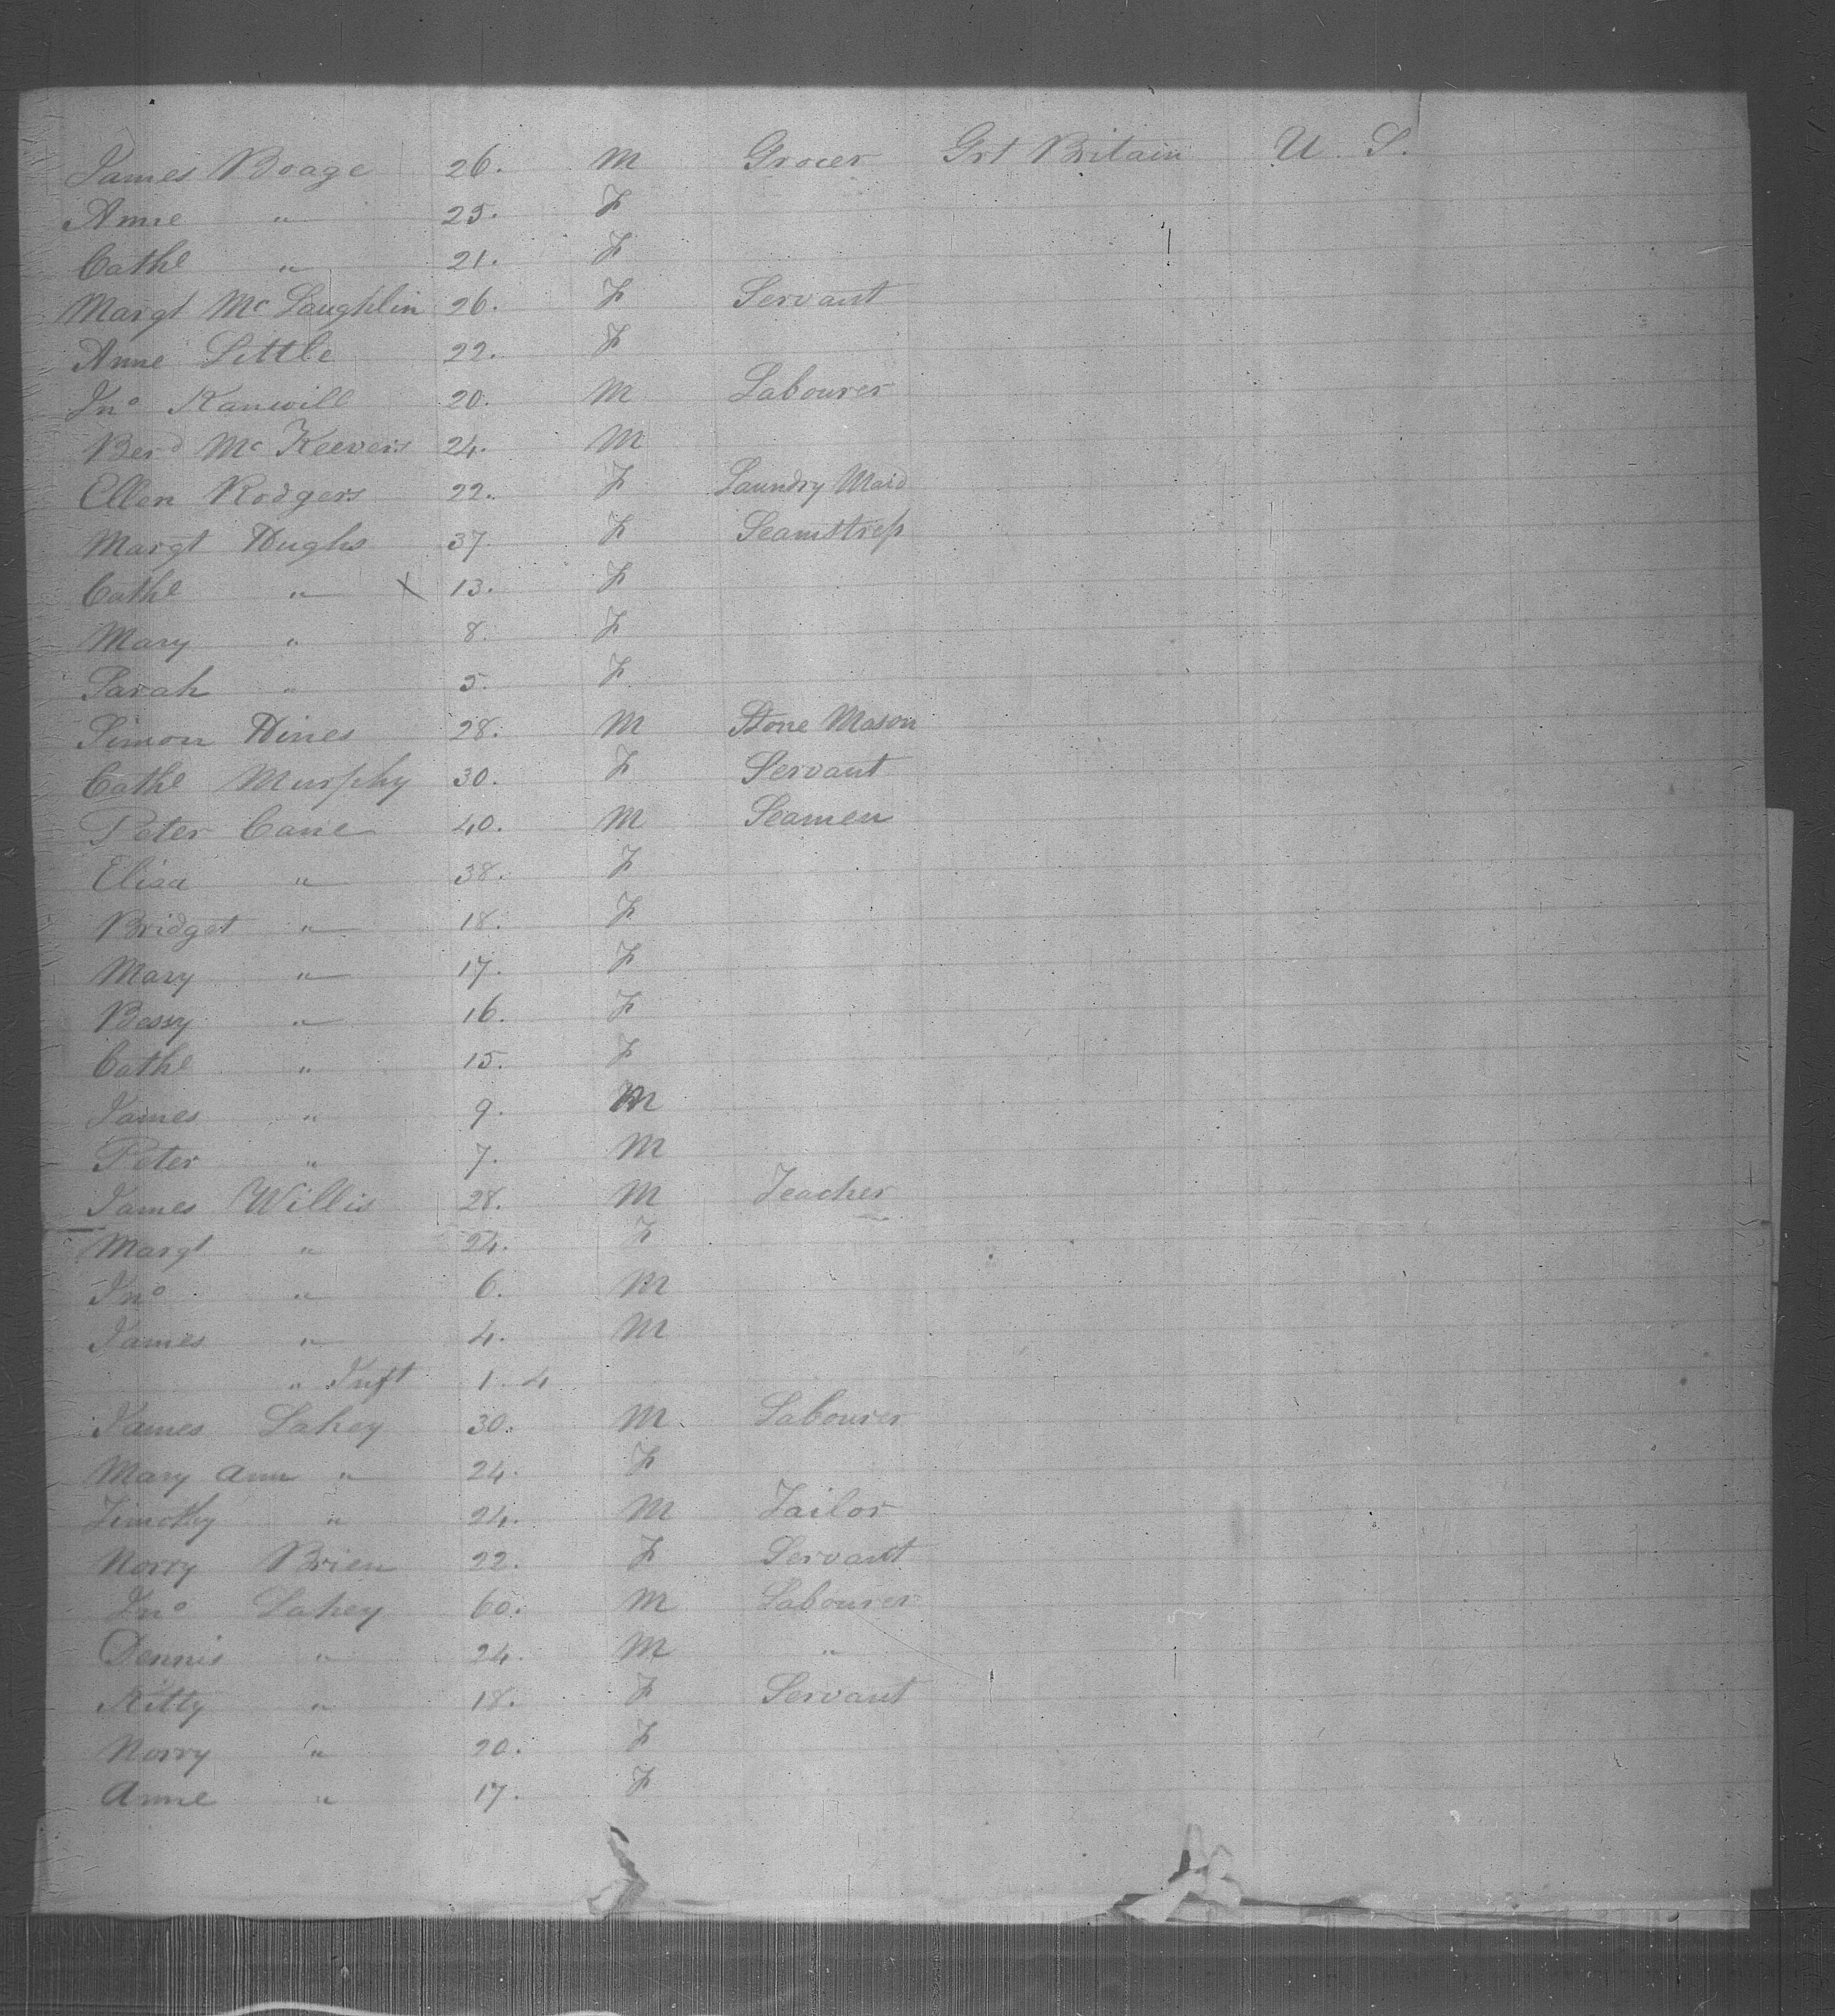 James Boage 26. M Grocer Grt Britain U. S.
Anne " 25. F
Cathe " 21. F
Margt Mc Laughlin 26. F Servant
Anne Little 22. F
Jno Kanwill 20. M Labourer
Berd Mc Keevers 24. M
Ellen Rodgers 22. F Laundry Maid
Margt Hughs 37. F Seamstress
Cathe " X 13. F
Mary " 8. F
Sarah " 5. F
Simon Hines 28. M Stone Mason
Cathe Murphy 30. F Servant
Peter Cane 40. M Seamen
Eliza " 38. F
Bridget " 18. F
Mary " 17. F
Bessy " 16. F
Cathe " 15. F
James " 9. M
Peter " 7. M
James Willis 28. M Teacher
Margt " 24. F
Jno " 6. M
James " 4. M
" Inft 1. 4
James Lahey 30. M Labourer
Mary Ann " 24. F
Timothy " 24. M Tailor
Norry Brien 22. F Servant
Jno Lahey 60. M Labourer
Dennis " 24. M "
Kitty " 18. F Servant
Norry " 20. F
Anne " 17. F